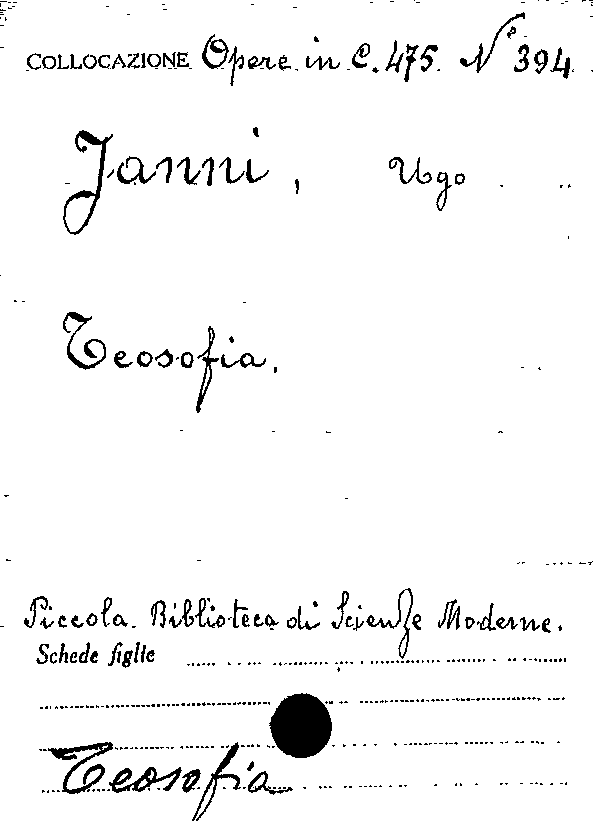 COLLOCAZIONE Opere in C. 475. N° 394
Janni, Ugo
Teosofia.
Piccola Biblioteca di Scienze Moderne.
Schede figlie
Teosofia